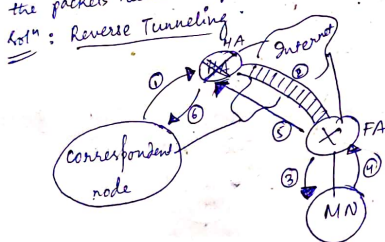 the packets
Solⁿ : Reverse Tunneling.
HA
Internet
①
②
⑥
⑤
X
FA
Correspondent
node
③
④
MN